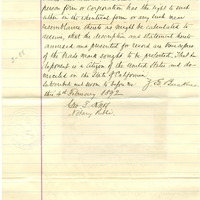 person firm or Corporation has the right to such
use either in the identical form or any such near
resemblance thereto as might be calculated to
deceive, that the description and statement hereto
annexed and presented for record are true copies
of the trade mark sought to be protected. That
deponent is a citizen of the United States and
in the State of California
Subscribed and sworn to before me
this 4th February 1892
Notary Public